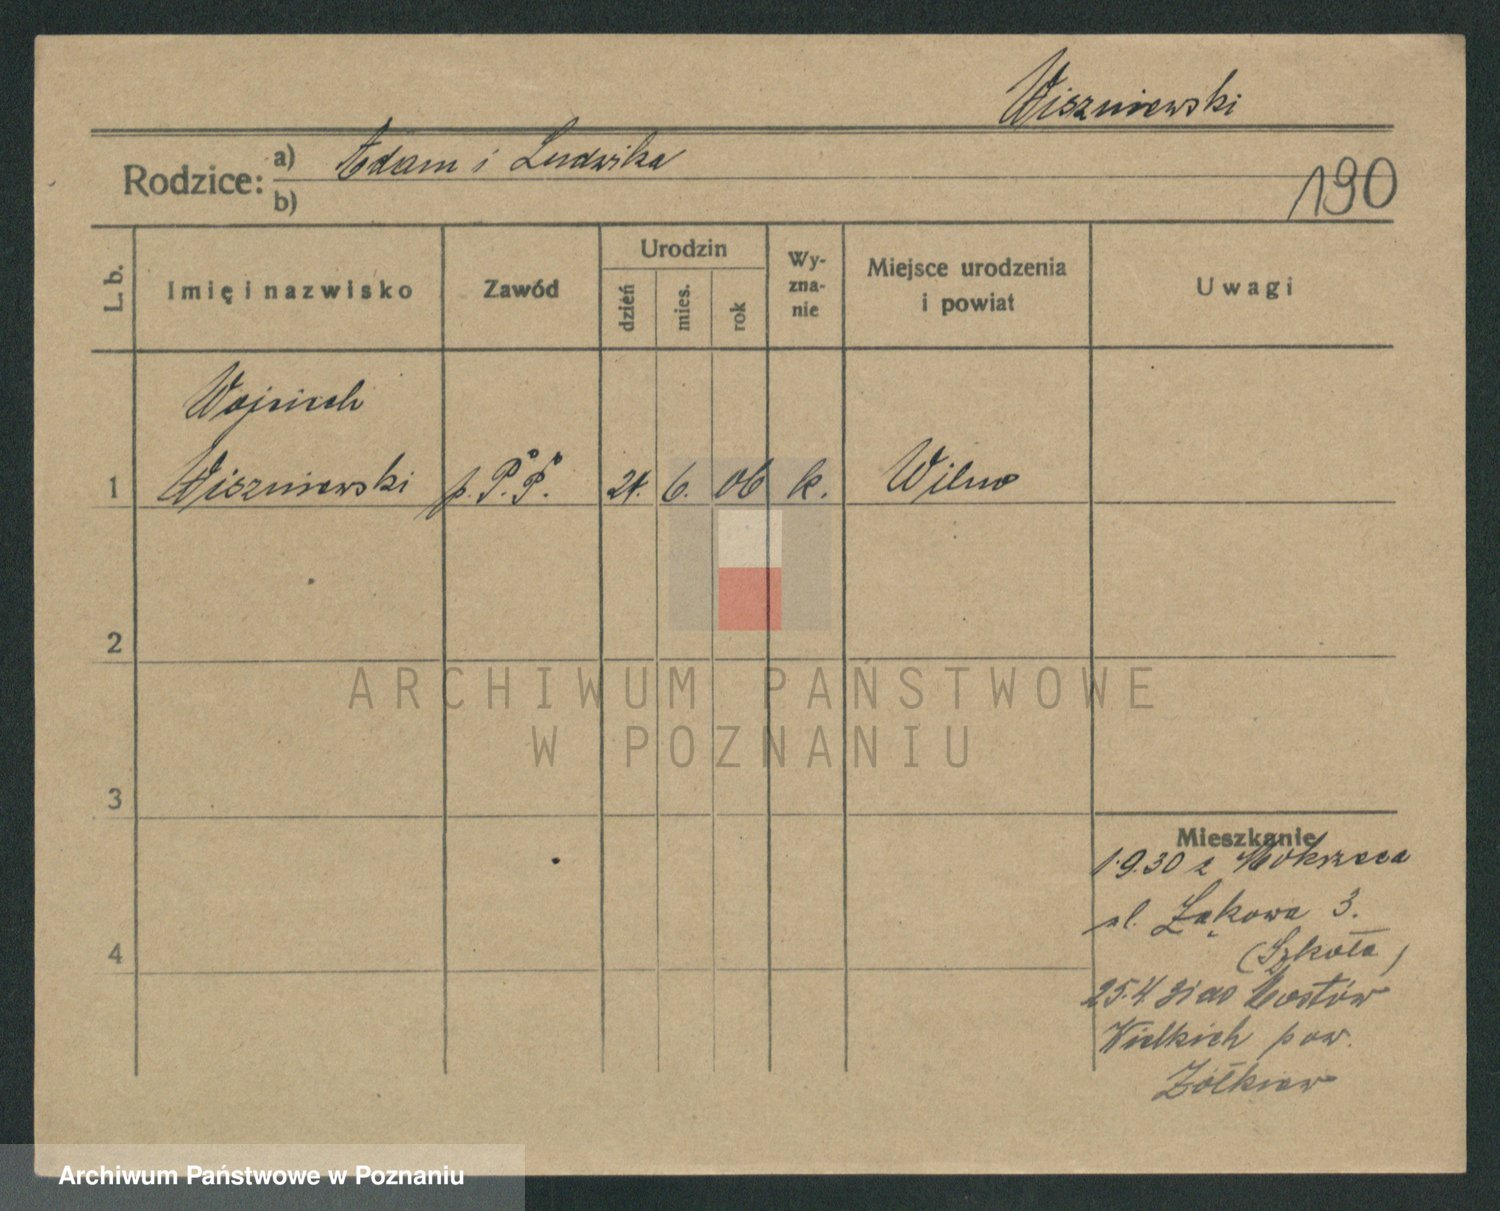 Wiszniewski
Rodzice: a) Adam i Ludwika
b)
190
L. b.
Imię i nazwisko
Zawód
Urodzin
dzień
mies.
rok
Wy-
zna-
nie
Miejsce urodzenia
i powiat
Uwagi
Wojciech
1 Wiszniewski p. P. P. 24. 6. 06 k. Wilno
2
3
4
Mieszkanie
1.9.30 z Mokrzca
ul. Łąkowa 3.
(Szkoła)
25.4 31 do Mostów
Wielkich pow.
Żółkiew
ARCHIWUM PAŃSTWOWE
W POZNANIU
Archiwum Państwowe w Poznaniu